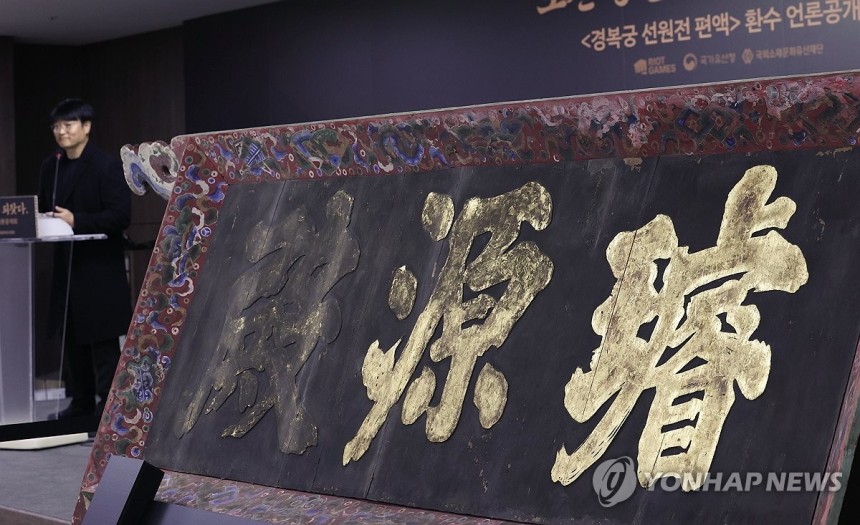 <경복궁 선원전 편액> 환수 언론공개
RIOT GAMES 국가유산청 국외소재문화유산재단
되찾다.
殿源璿
YONHAP NEWS